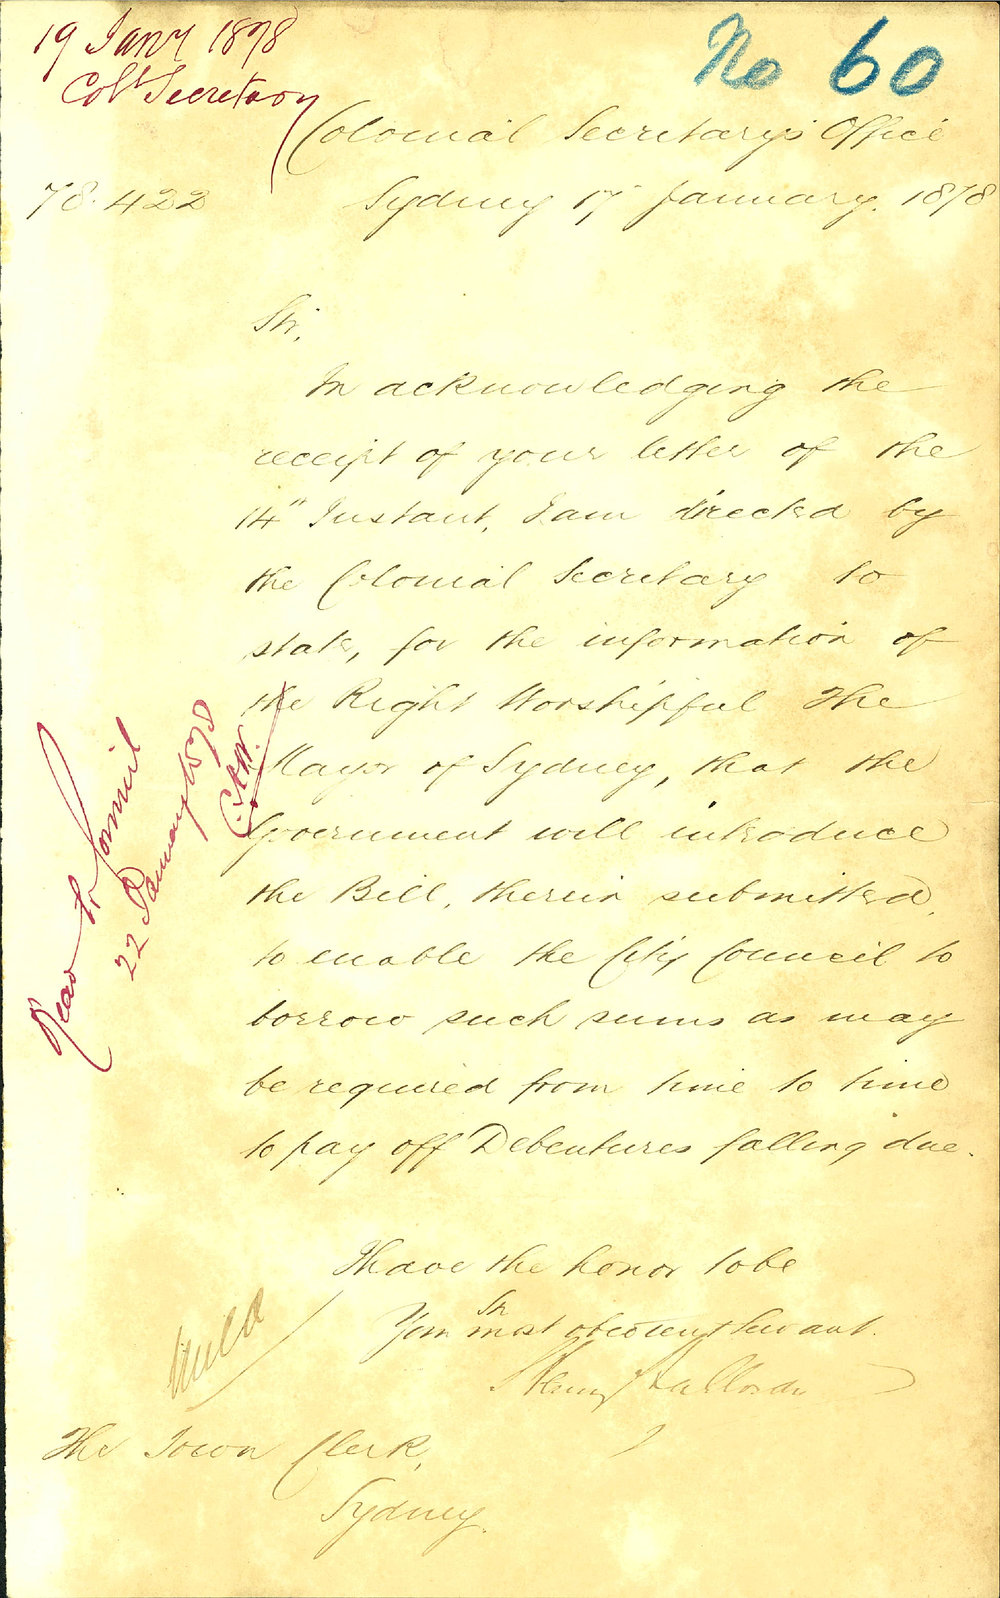 19 Jany 1878
No 60
Coll Secretary
Colonial Secretary's Office
78.422
Sydney 17 January. 1878
Sir,
In acknowledging the
receipt of your letter of the
14" Instant, I am directed by
the Colonial Secretary to
state, for the information of
the Right Worshipful The
Mayor of Sydney, that the
Government will introduce
the Bill, therein submitted,
to enable the City Council to
borrow such sums as may
be required from time to time
to pay off Debentures falling due.
Read to Council
22 January 1878
I have the honor to be
Sir
Your most obedient Servant.
Henry Halloran
The Town Clerk,
Sydney.